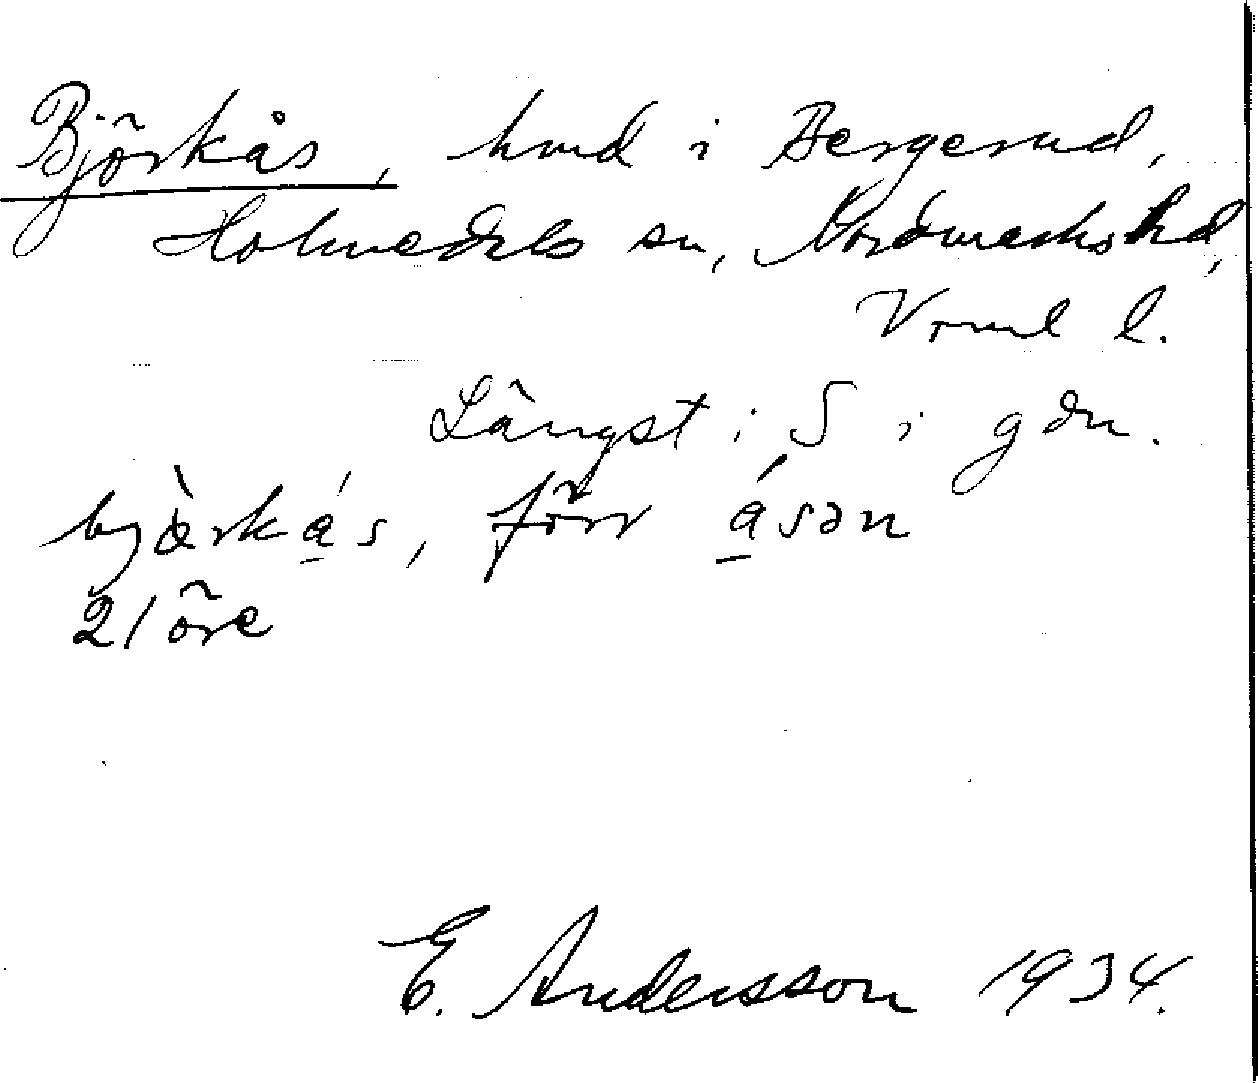 Björkås, hmd i Bergerud,
Holmedals sn, Nordmarks hd,
Vrml l.
Längst i S i gdn.
bjǽrkås, förr åsən
21 öre
E. Andersson 1934.